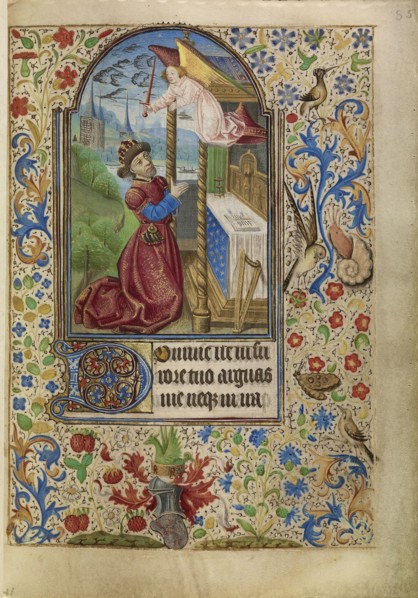 55
Domine ne in fu
rore tuo arguas
me neq3 in ira